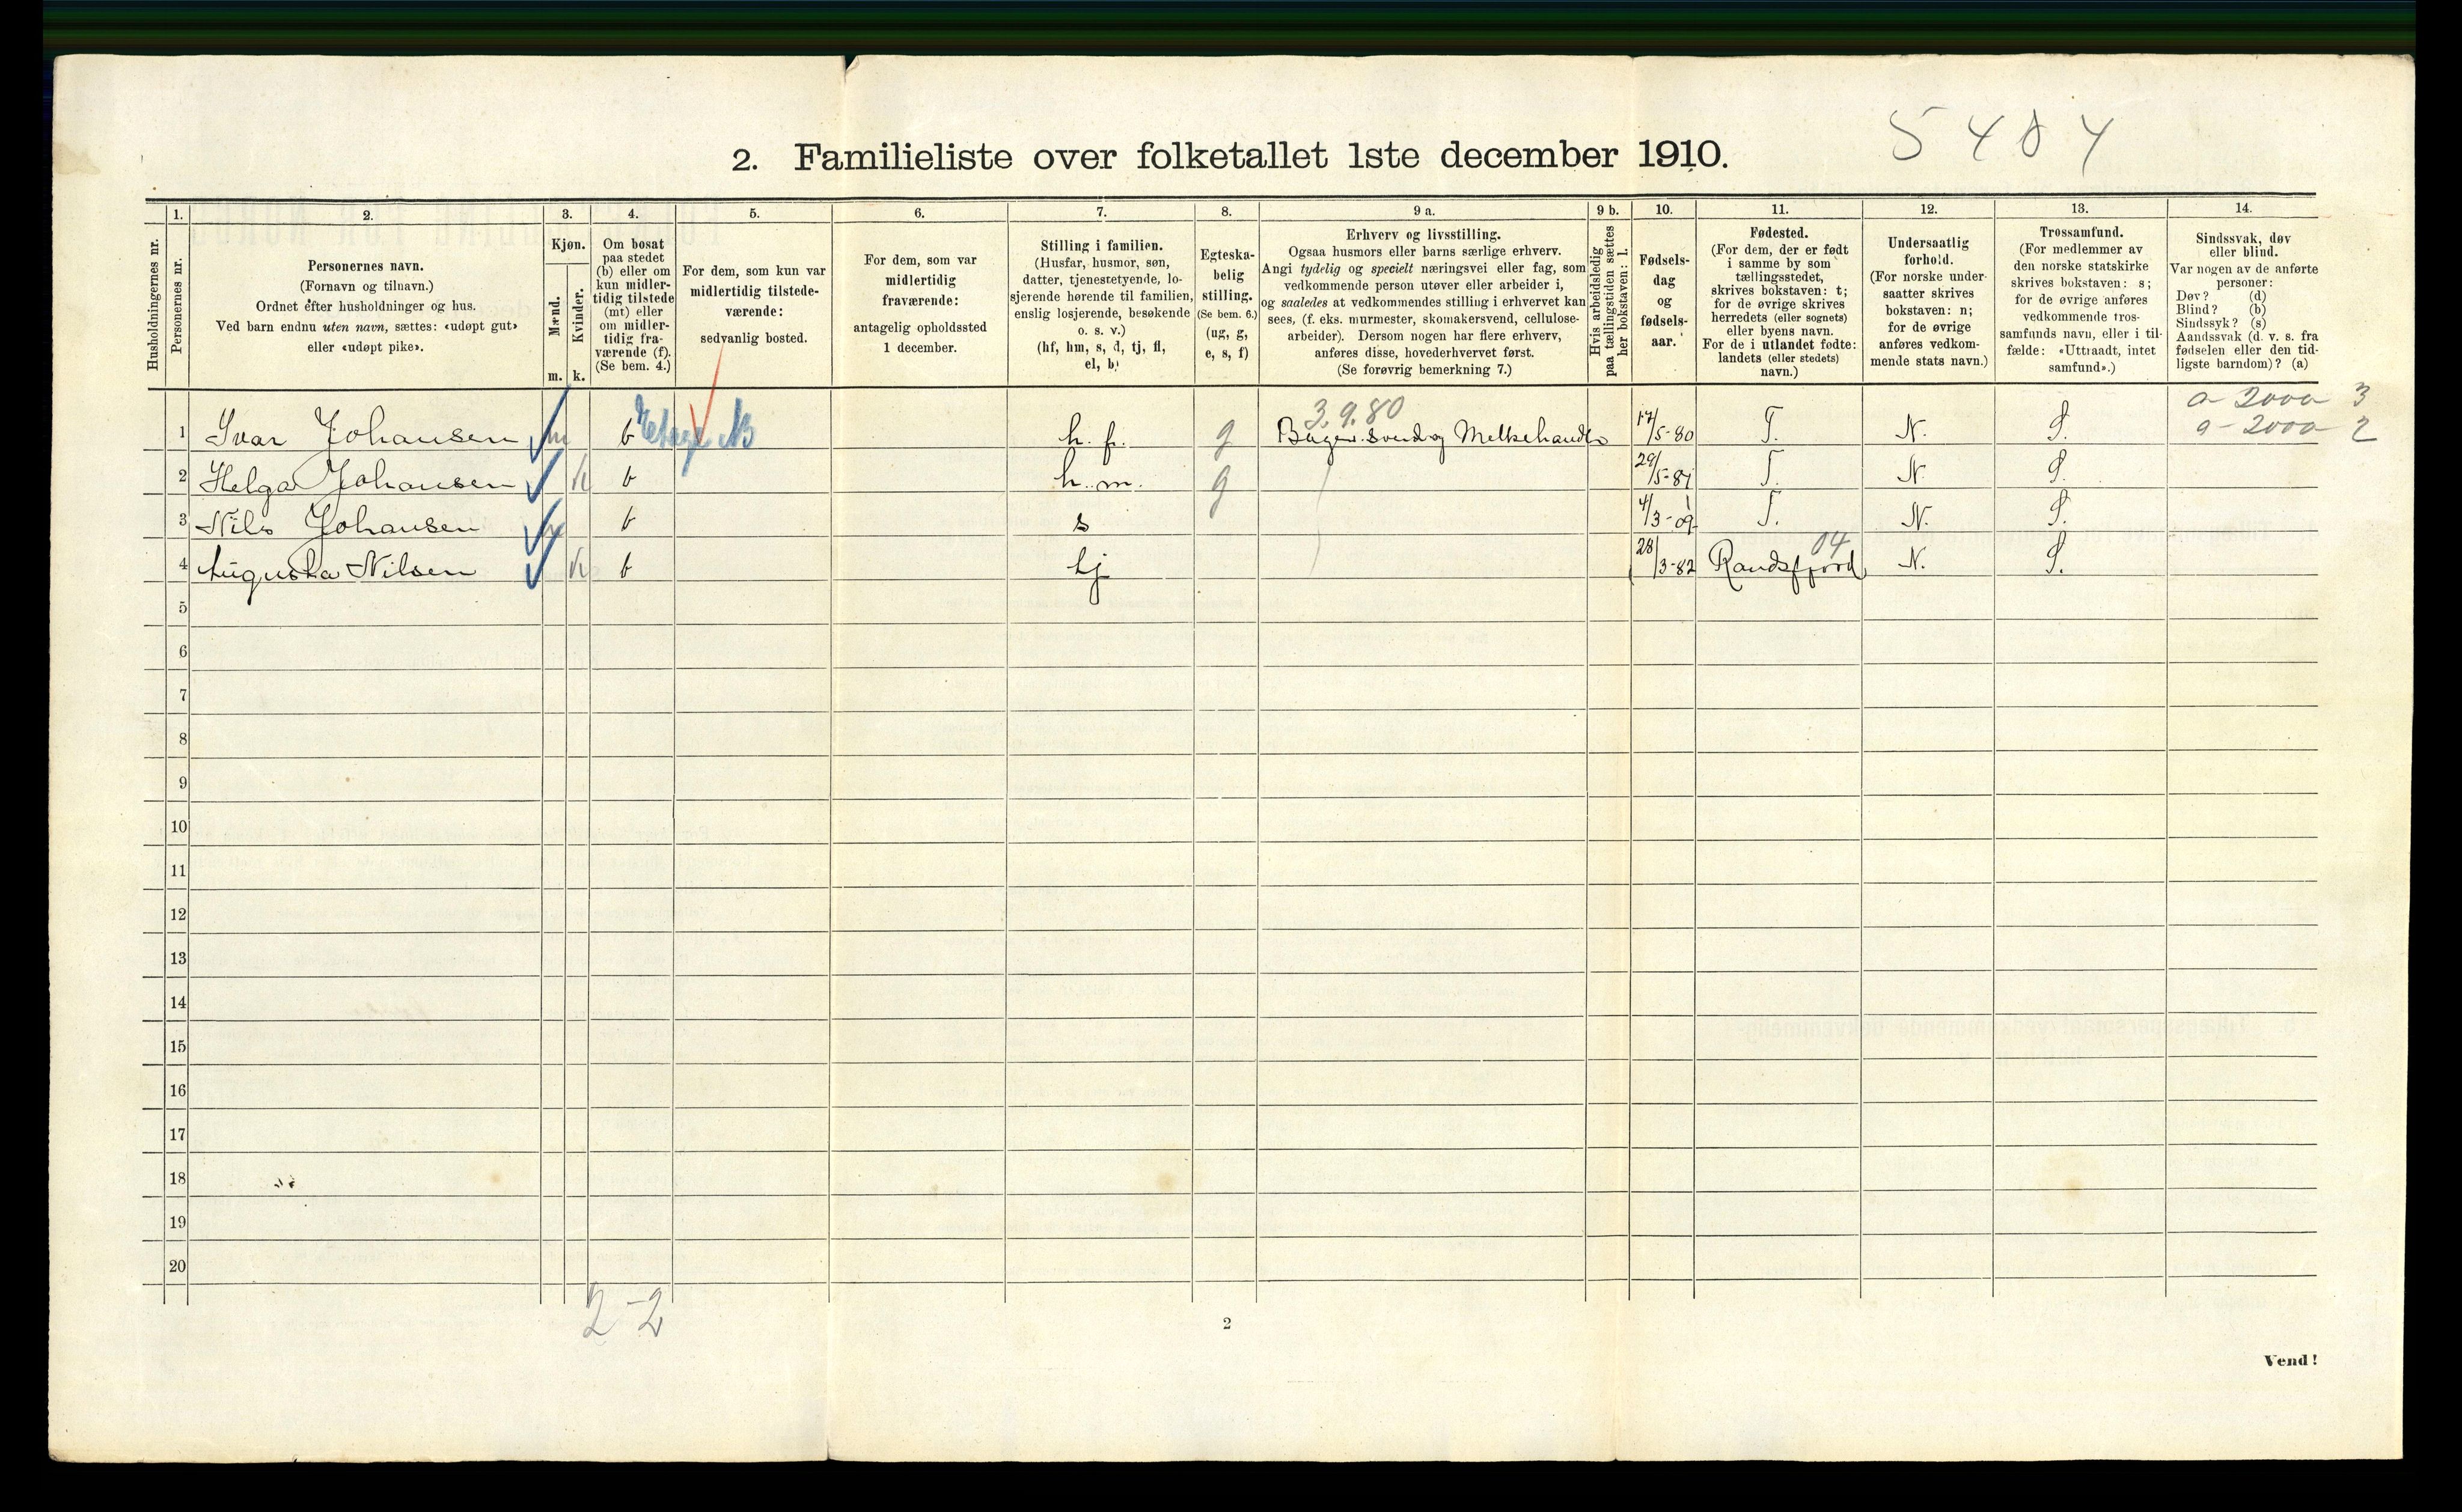 5484
2. Familieliste over folketallet 1ste december 1910.
1. 2. 3. 4. 5. 6. 7. 8. 9 a. 9 b. 10. 11. 12. 13. 14.
Husholdningernes nr.
Personernes nr.
Personernes navn.
(Fornavn og tilnavn.)
Ordnet efter husholdninger og hus.
Ved barn endnu uten navn, sættes: «udøpt gut»
eller «udøpt pike».
Kjøn.
Mænd.
m.
Kvinder.
k.
Om bosat
paa stedet
(b) eller om
kun midler-
tidig tilstede
(mt) eller
om midler-
tidig fra-
værende (f).
(Se bem. 4.)
For dem, som kun var
midlertidig tilstede-
værende:
sedvanlig bosted.
For dem, som var
midlertidig
fraværende:
antagelig opholdssted
1 december.
Stilling i familien.
(Husfar, husmor, søn,
datter, tjenestetyende, lo-
sjerende hørende til familien,
enslig losjerende, besøkende
o. s. v.)
(hf, hm, s, d, tj, fl,
el, b)
Egteska-
belig
stilling.
(Se bem. 6.)
(ug, g,
e, s, f)
Erhverv og livsstilling.
Ogsaa husmors eller barns særlige erhverv.
Angi tydelig og specielt næringsvei eller fag, som
vedkommende person utøver eller arbeider i,
og saaledes at vedkommendes stilling i erhvervet kan
sees, (f. eks. murmester, skomakersvend, cellulose-
arbeider). Dersom nogen har flere erhverv,
anføres disse, hovederhvervet først.
(Se forøvrig bemerkning 7.)
Hvis arbeidsledig
paa tællingstiden sættes
her bokstaven: l.
Fødsels-
dag
og
fødsels-
aar.
Fødested.
(For dem, der er født
i samme by som
tællingsstedet,
skrives bokstaven: t;
for de øvrige skrives
herredets (eller sognets)
eller byens navn.
For de i utlandet fødte:
landets (eller stedets)
navn.)
Undersaatlig
forhold.
(For norske under-
saatter skrives
bokstaven: n;
for de øvrige
anføres vedkom-
mende stats navn.)
Trossamfund.
(For medlemmer av
den norske statskirke
skrives bokstaven: s;
for de øvrige anføres
vedkommende tros-
samfunds navn, eller i til-
fælde: «Uttraadt, intet
samfund».)
Sindssvak, døv
eller blind.
Var nogen av de anførte
personer:
Døv? (d)
Blind? (b)
Sindssyk? (s)
Aandssvak (d. v. s. fra
fødselen eller den tid-
ligste barndom)? (a)
3.9.80
a 2000 3
a - 2000 2
1 Ivar Johansen m b h. f. g Bager svend og Melkehandler 17/5-80 T. N. S.
2 Helga Johansen k b h. m. g 29/5-81 T. N. S.
3 Nils Johansen m b s 4/3-09 T. N. S.
04
4 Augusta Nilsen k b tj 28/3-82 Randsfjord N. S.
5
6
7
8
9
10
11
12
13
14
15
16
17
18
19
20
2-2
2
Vend!